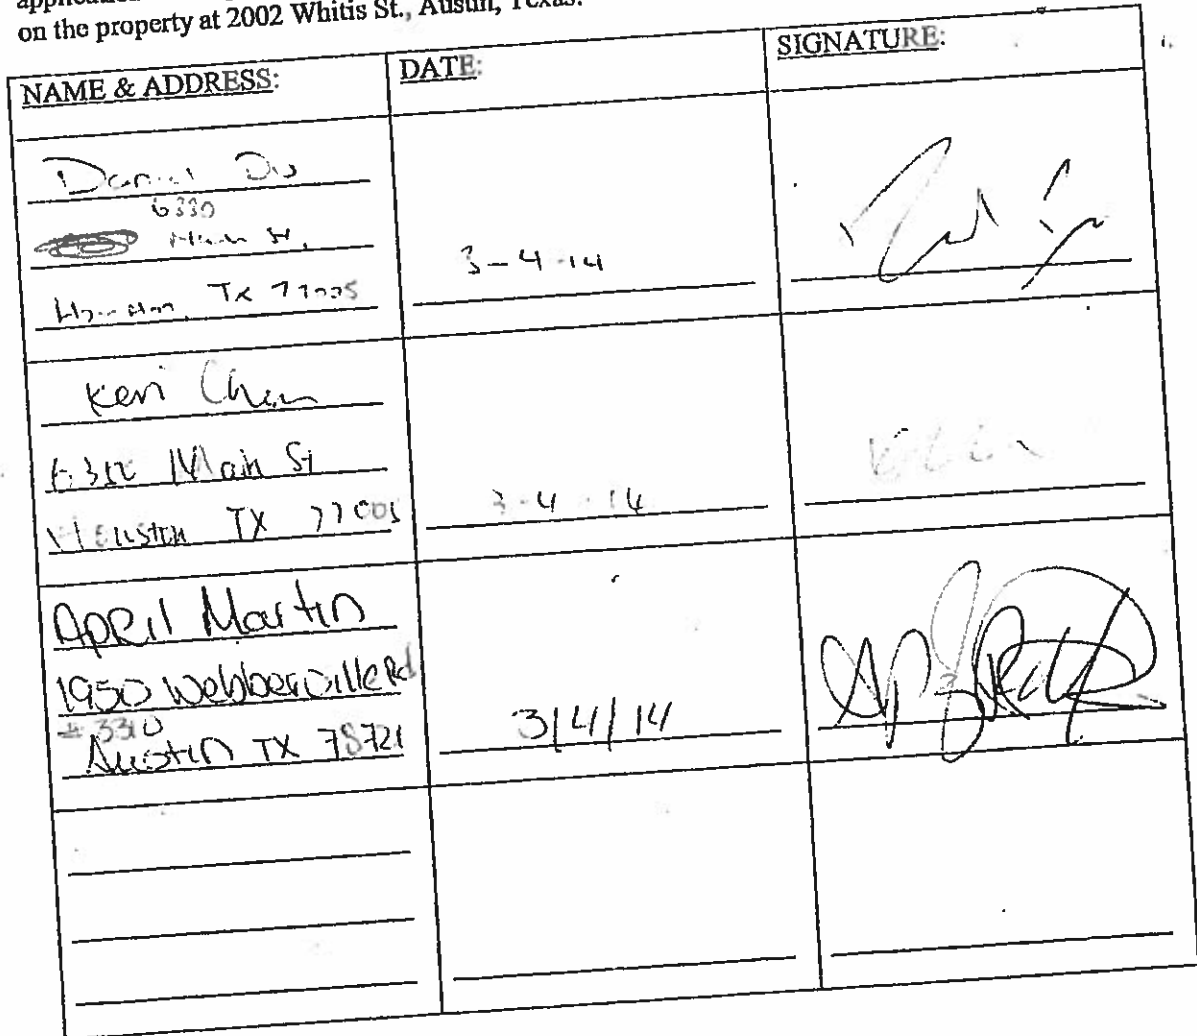 application
on the property at 2002 Whitis St., Austin, Texas.
NAME & ADDRESS: DATE: SIGNATURE:
Daniel
6330
Main St,
Houston, TX 77005
3-4-14
Keri Chen
Main St
Houston TX 77005
3-4-14
April Martin
1950 Webberville Rd
#3310
Austin TX 78721
3/4/14